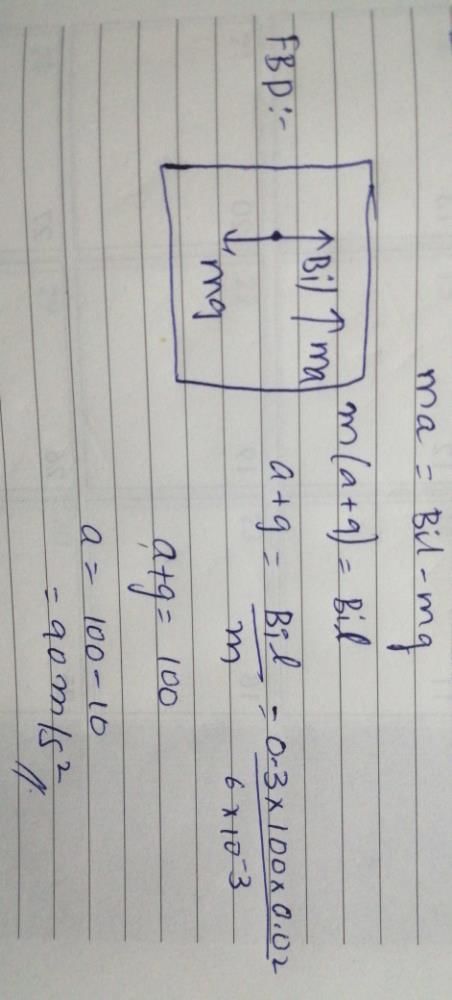 ma = Bil - mg
FBD:-
Bil ↑ ma
mg
m(a+g) = Bil
a+g = Bil/m = 0.3×100×0.02/6×10⁻³
a+g = 100
a = 100-10
= 90 m/s²